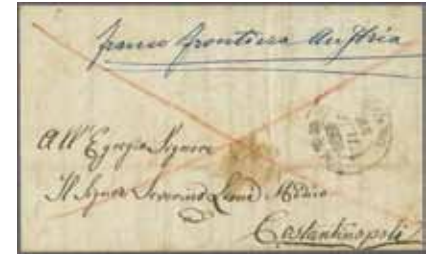 franco frontiera Austria
All' Egregio Signore
Il Signor Severino Medico
Costantinopoli